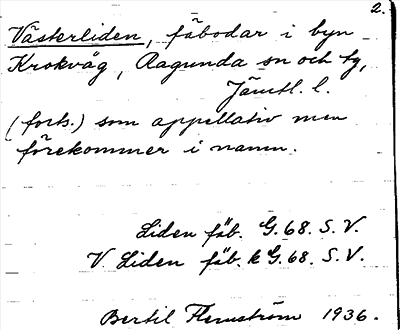 2.
Västerliden, fäbodar i byn
Krokvåg, Ragunda sn och tg,
Jämtl. l.
(forts.) som appellativ men
förekommer i namn.
Liden fäb. G. 68. S. V.
V Liden fäb. k G. 68. S. V.
Bertil Flemström 1936.